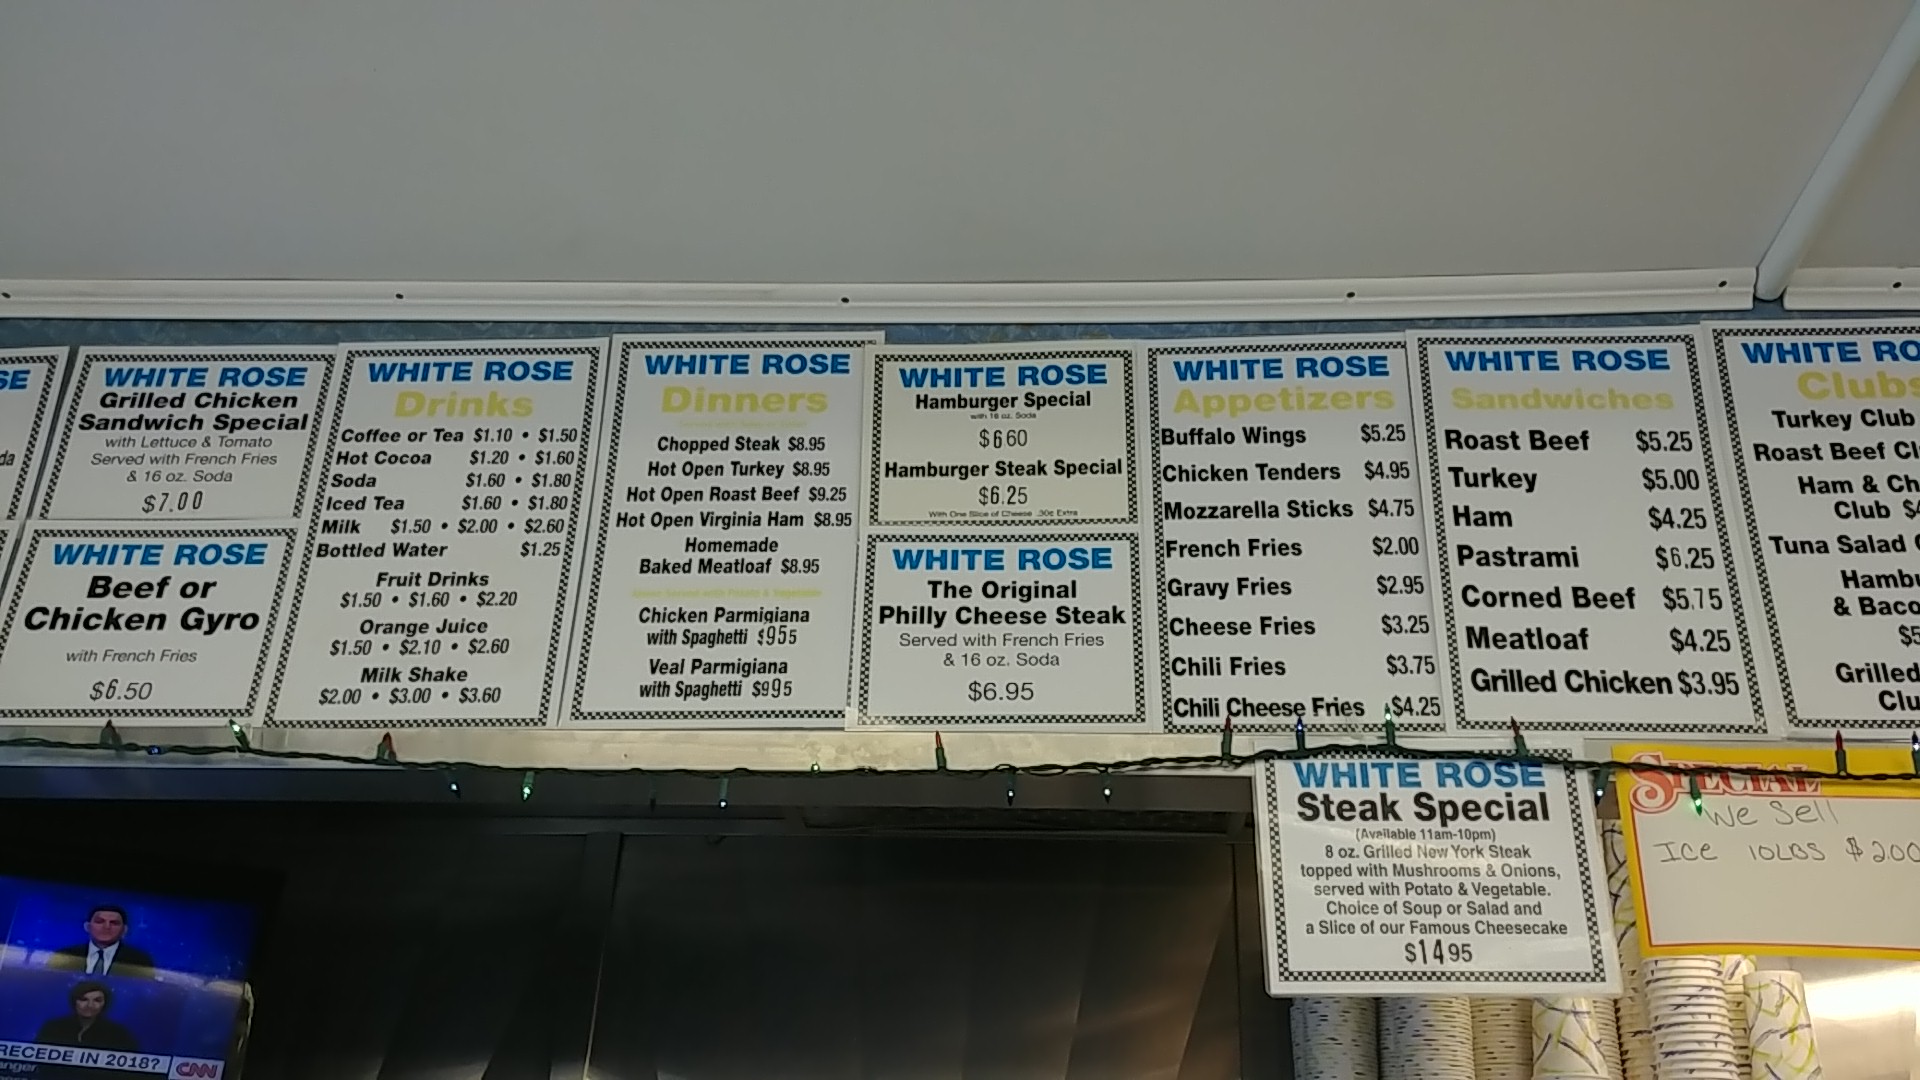 SE
da
WHITE ROSE
Grilled Chicken
Sandwich Special
with Lettuce & Tomato
Served with French Fries
& 16 oz. Soda
$7.00
WHITE ROSE
Beef or
Chicken Gyro
with French Fries
$6.50
WHITE ROSE
Drinks
Coffee or Tea $1.10 • $1.50
Hot Cocoa $1.20 • $1.60
Soda $1.60 • $1.80
Iced Tea $1.60 • $1.80
Milk $1.50 • $2.00 • $2.60
Bottled Water $1.25
Fruit Drinks
$1.50 • $1.60 • $2.20
Orange Juice
$1.50 • $2.10 • $2.60
Milk Shake
$2.00 • $3.00 • $3.60
WHITE ROSE
Dinners
Chopped Steak $8.95
Hot Open Turkey $8.95
Hot Open Roast Beef $9.25
Hot Open Virginia Ham $8.95
Homemade
Baked Meatloaf $8.95
Above Served with Potato & Vegetable
Chicken Parmigiana
with Spaghetti $955
Veal Parmigiana
with Spaghetti $995
WHITE ROSE
Hamburger Special
with 16 oz. Soda
$660
Hamburger Steak Special
$6.25
With One Slice of Cheese .30¢ Extra
WHITE ROSE
The Original
Philly Cheese Steak
Served with French Fries
& 16 oz. Soda
$6.95
WHITE ROSE
Appetizers
Buffalo Wings $5.25
Chicken Tenders $4.95
Mozzarella Sticks $4.75
French Fries $2.00
Gravy Fries $2.95
Cheese Fries $3.25
Chili Fries $3.75
Chili Cheese Fries $4.25
WHITE ROSE
Sandwiches
Roast Beef $5.25
Turkey $5.00
Ham $4.25
Pastrami $6.25
Corned Beef $5.75
Meatloaf $4.25
Grilled Chicken $3.95
WHITE RO
Clubs
Turkey Club
Roast Beef Cl
Ham & Ch
Club $4
Tuna Salad C
Hambu
& Baco
$5
Grilled
Clu
WHITE ROSE
Steak Special
(Available 11am-10pm)
8 oz. Grilled New York Steak
topped with Mushrooms & Onions,
served with Potato & Vegetable.
Choice of Soup or Salad and
a Slice of our Famous Cheesecake
$1495
SPECIAL
We Sell
ICE 10LBS $2.00
RECEDE IN 2018?
CNN
anger